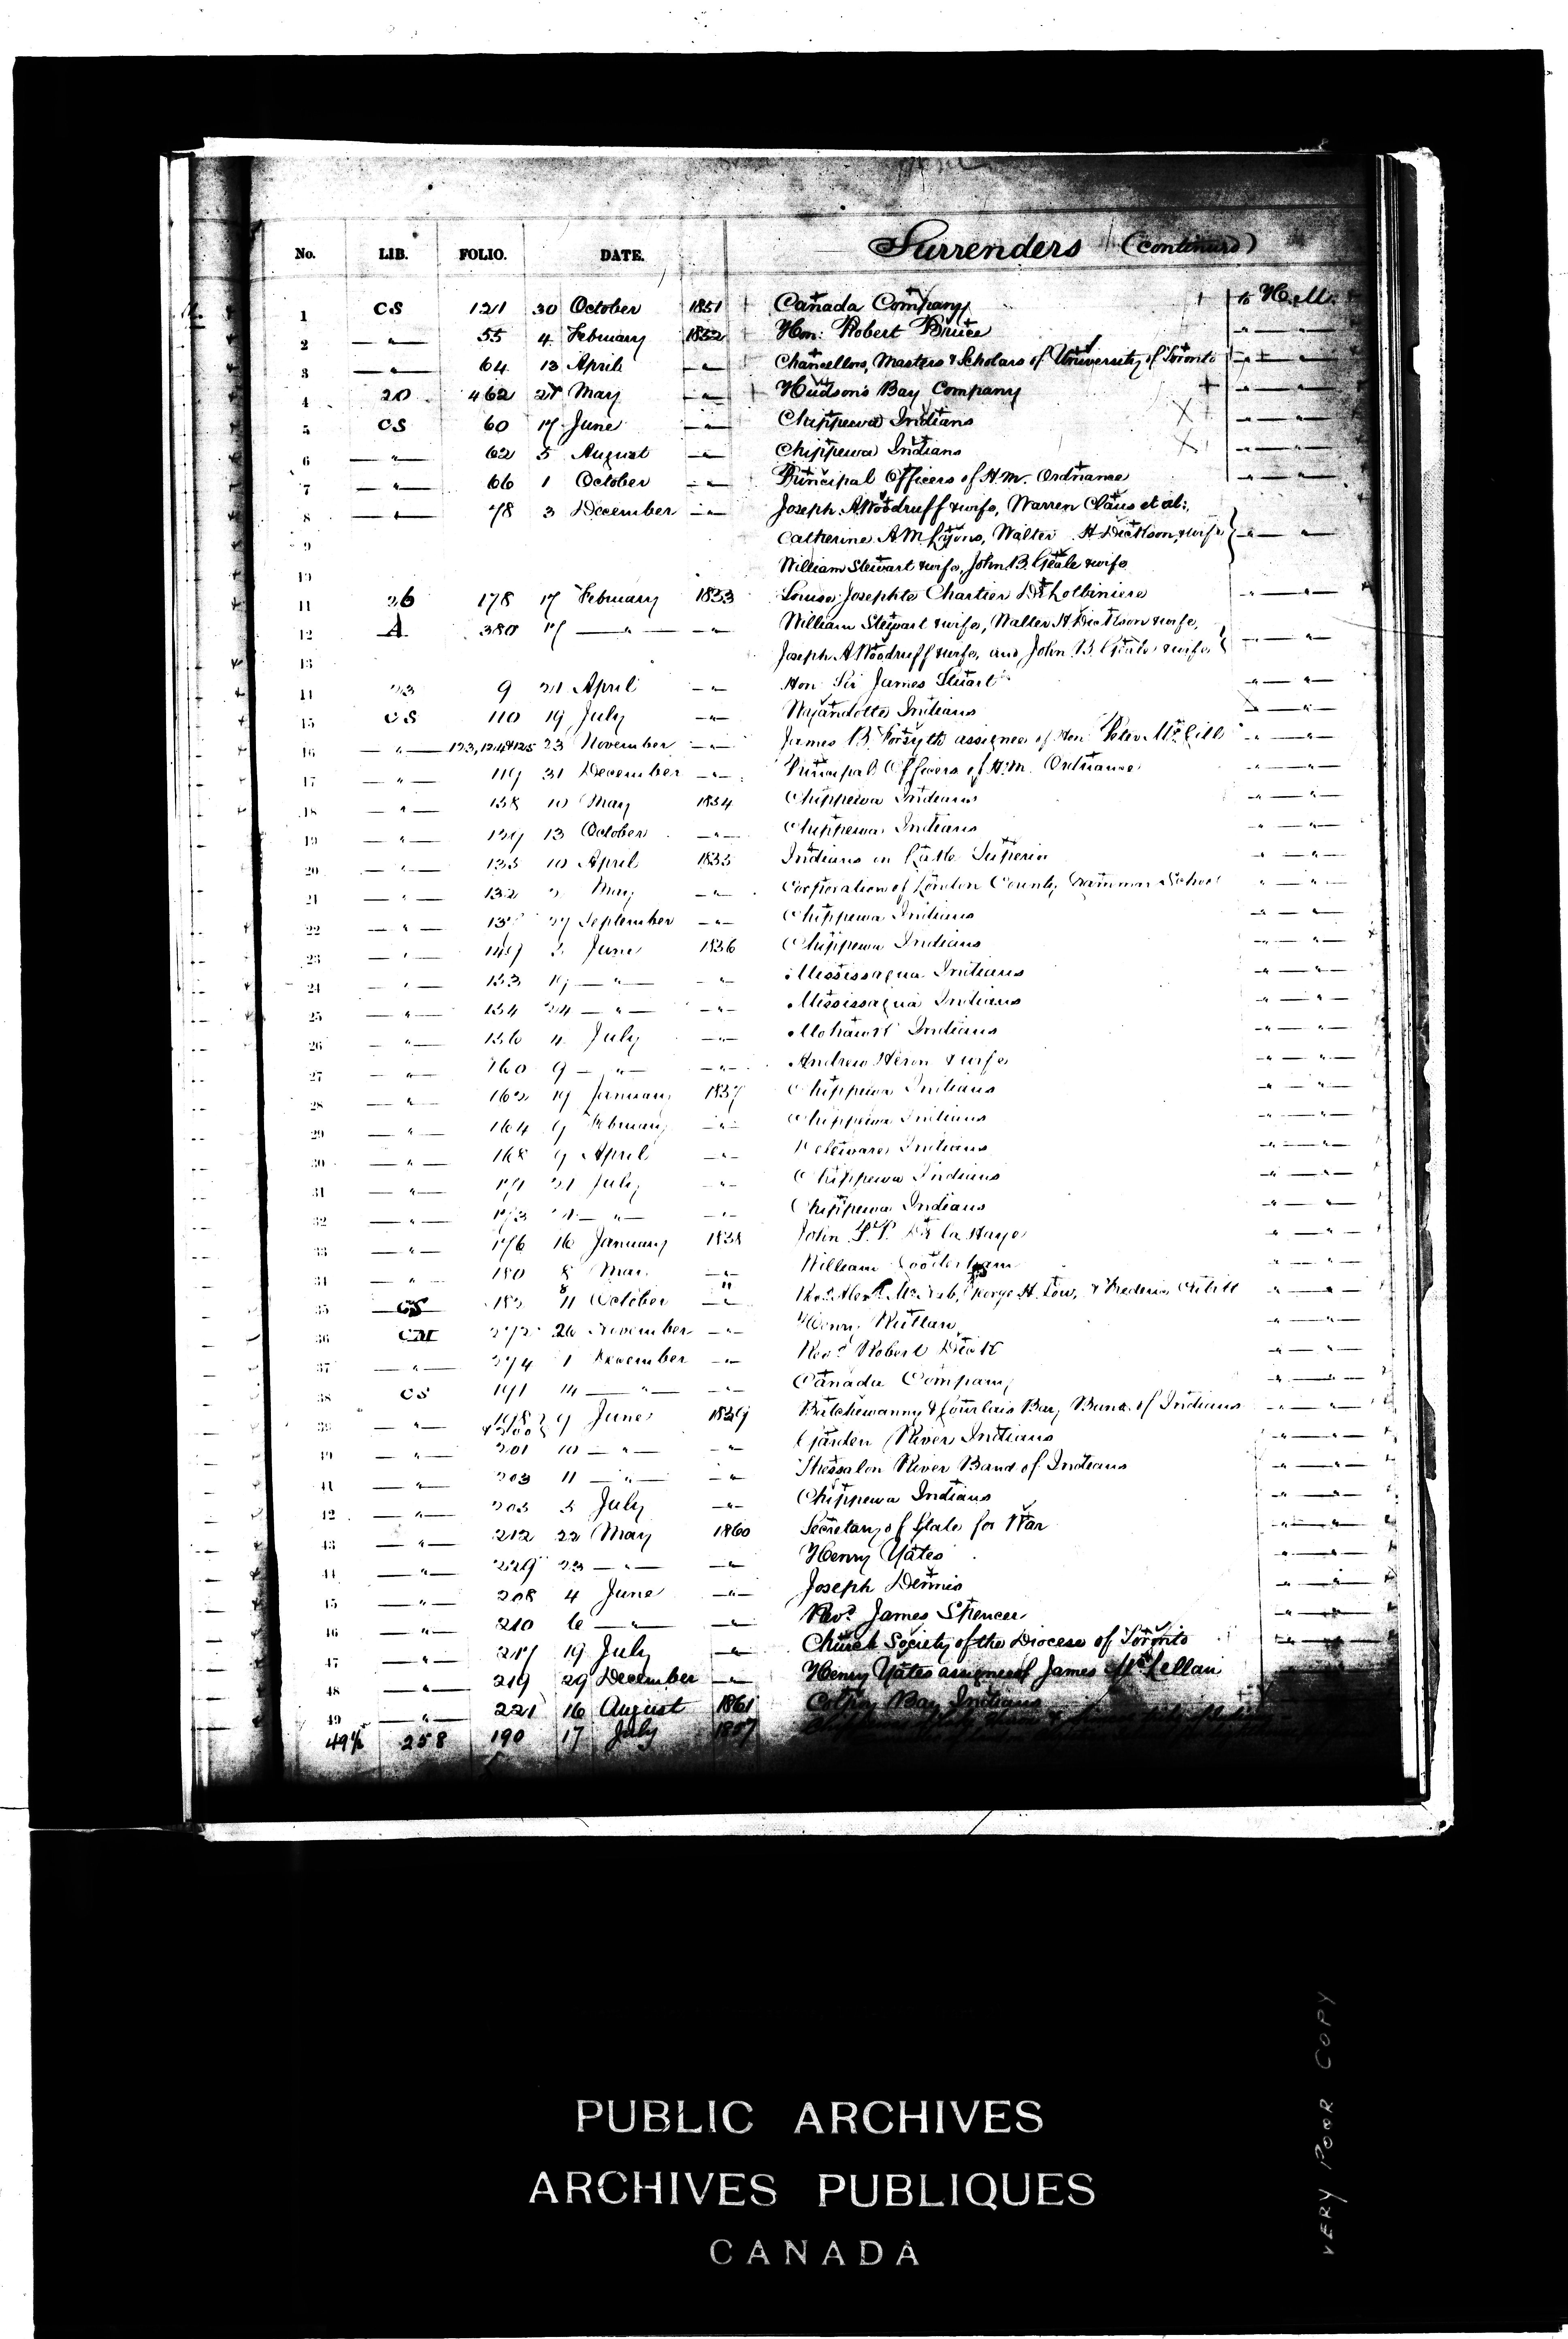 No. LIB. FOLIO. DATE. Surrenders (continued)
1 CS 121 30 October 1851 Canada Company to H.M.
2 —"— 55 4 February 1852 Hon: Robert Bruce —"— —"—
3 —"— 64 13 April —"— Chancellors, Masters & Scholars of University of Toronto —"— —"—
4 20 462 27 May —"— Hudson's Bay Company —"— —"—
5 CS 60 17 June —"— Chippewa Indians —"— —"—
6 —"— 62 5 August —"— Chippewa Indians —"— —"—
7 —"— 66 1 October —"— Principal Officers of H.M. Ordnance —"— —"—
8 —"— 78 3 December —"— Joseph A Woodruff & wife, Warren Claus et al:,
9 Catherine A M Lyons, Walter H Dickson, & wife —"— —"—
10 William Stewart & wife, John B. Geale & wife
11 26 178 17 February 1853 Louise Josephte Chartier De Lotbiniere —"— —"—
12 A 380 17 —"— —"— William Stewart & wife, Walter H Dickson & wife,
13 Joseph A Woodruff & wife, and John B Geale & wife —"— —"—
14 23 9 21 April —"— Hon Sir James Stuart —"— —"—
15 CS 110 19 July —"— Wyandotte Indians —"—
16 —"— 123, 124 & 125 23 November —"— James B. Forsyth assignee of Hon Peter McGill —"— —"—
17 —"— 119 31 December —"— Principal Officers of H.M. Ordnance —"— —"—
18 —"— 138 10 May 1854 Chippewa Indians —"— —"—
19 —"— 13 October —"— Chippewa Indians —"— —"—
20 —"— 10 April 1855 Indians on Lake Superior —"— —"—
21 —"— 132 May —"— Corporation of London County Grammar School —"— —"—
22 —"— 27 September —"— Chippewa Indians —"— —"—
23 —"— June 1856 Chippewa Indians —"— —"—
24 —"— 153 19 —"— —"— Mississaqua Indians —"— —"—
25 —"— 154 24 —"— —"— Mississaqua Indians —"— —"—
26 —"— 156 4 July —"— Mohawk Indians —"— —"—
27 —"— 160 9 —"— —"— Andrew Heron & wife —"— —"—
28 —"— 162 19 January 1857 Chippewa Indians —"— —"—
29 —"— 164 9 February —"— Chippewa Indians —"— —"—
30 —"— 168 9 April —"— Deleware Indians —"— —"—
31 —"— 171 21 July —"— Chippewa Indians —"— —"—
32 —"— 173 —"— —"— Chippewa Indians —"— —"—
33 —"— 176 16 January 1858 John De la Haye —"— —"—
34 —"— 180 8 May —"— William Gooderham —"— —"—
35 CS 11 October —"— George H. Low, & Frederic —"— —"—
36 26 November —"— Henry Ruttan —"— —"—
37 —"— 274 1 December —"— Revd Robert Dick —"— —"—
38 CS 191 14 —"— —"— Canada Company —"— —"—
39 —"— 198 & 200 9 June 1859 Batchewanny & Goulais Bay Band of Indians —"— —"—
40 —"— 201 10 —"— —"— Garden River Indians —"— —"—
41 —"— 203 11 —"— —"— Thessalon River Band of Indians —"— —"—
42 —"— 205 5 July —"— Chippewa Indians —"— —"—
43 —"— 212 22 May 1860 Secretary of State for War —"— —"—
44 —"— 229 23 —"— —"— Henry Yates —"— —"—
45 —"— 208 4 June —"— Joseph Dennis —"— —"—
46 —"— 210 6 —"— —"— Revd James Spencer —"— —"—
47 —"— 217 19 July —"— Church Society of the Diocese of Toronto —"— —"—
48 —"— 219 29 December —"— Henry Yates assignee of James McLellan
49 —"— 221 16 August 1861 Bay Indians
49½ 258 190 17 July 1857
PUBLIC ARCHIVES
ARCHIVES PUBLIQUES
CANADA
VERY POOR COPY